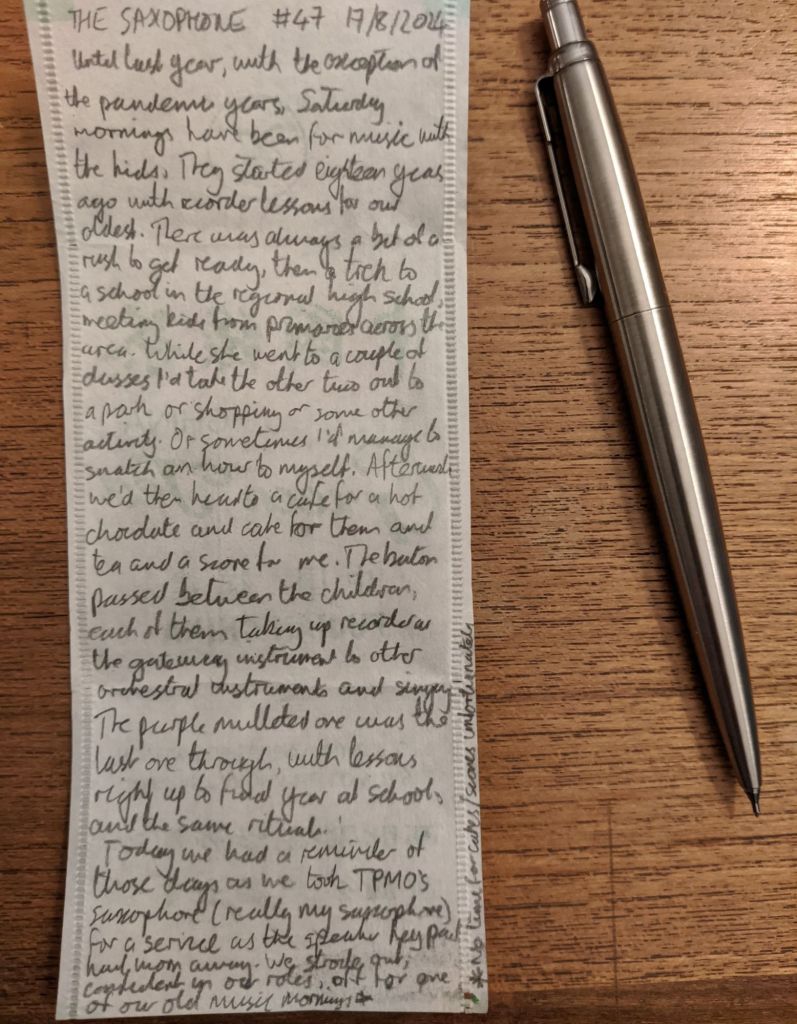 THE SAXOPHONE #47 17/8/2024
Until last year, with the exception of
the pandemic years, Saturday
mornings have been for music with
the kids. They started eighteen years
ago with recorder lessons for our
oldest. There was always a bit of a
rush to get ready, then a trek to
a school in the regional high school,
meeting kids from primaries across the
area. While she went to a couple of
classes I'd take the other two out to
a park or shopping or some other
activity. Or sometimes I'd manage to
snatch an hour to myself. Afterwards
we'd then head to a cafe for a hot
chocolate and cake for them and
tea and a scone for me. The baton
passed between the children,
each of them taking up recorder as
the gateway instrument to other
orchestral instruments and singing.
The purple mulleted one was the
last one through, with lessons
right up to final year at school,
and the same ritual.
Today we had a reminder of
those days as we took TPMO's
saxophone (really my saxophone)
for a service as the speaker key pad
had worn away. We strode out,
confident in our roles, off for one
of our old music mornings*
* No time for cakes/scones unfortunately